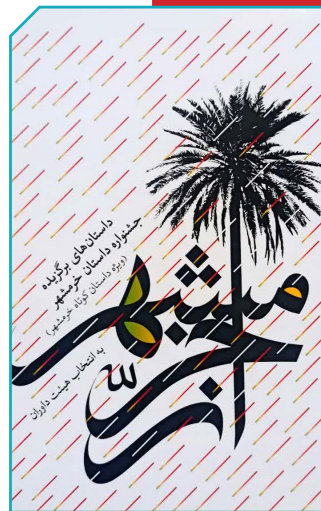 داستان‌های برگزیده
جشنواره داستان خرمشهر
(ویژه داستان کوتاه خرمشهر)
به انتخاب هیئت داوران
خرمشهر